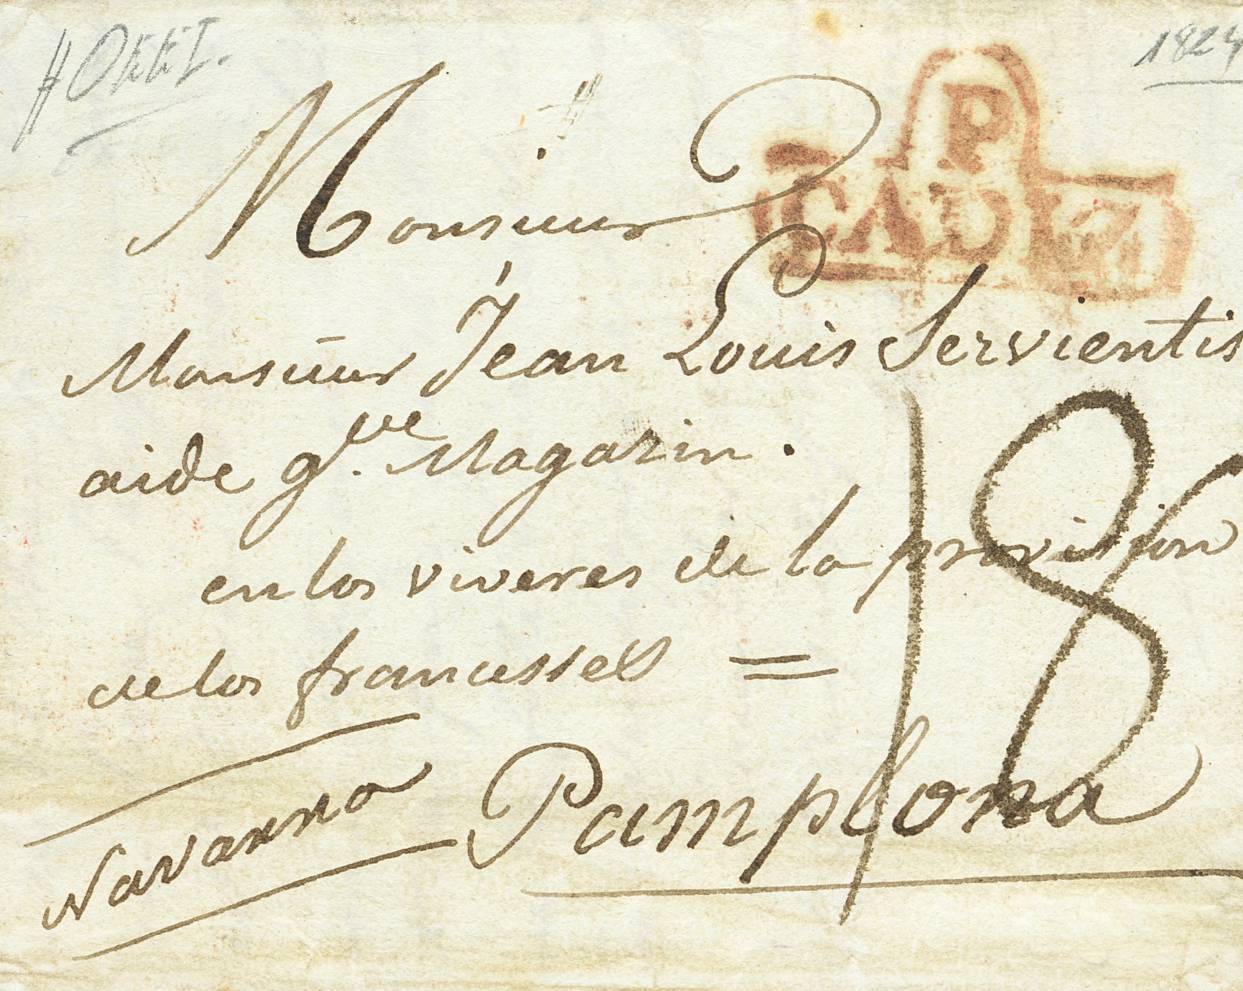 1824
P
CADIZ
Monsieur
Monsieur Jean Louis Servientis
aide g.^ve Magazin.
en los viveres de la provision
de los francesses =
18
Navarra
Pamplona